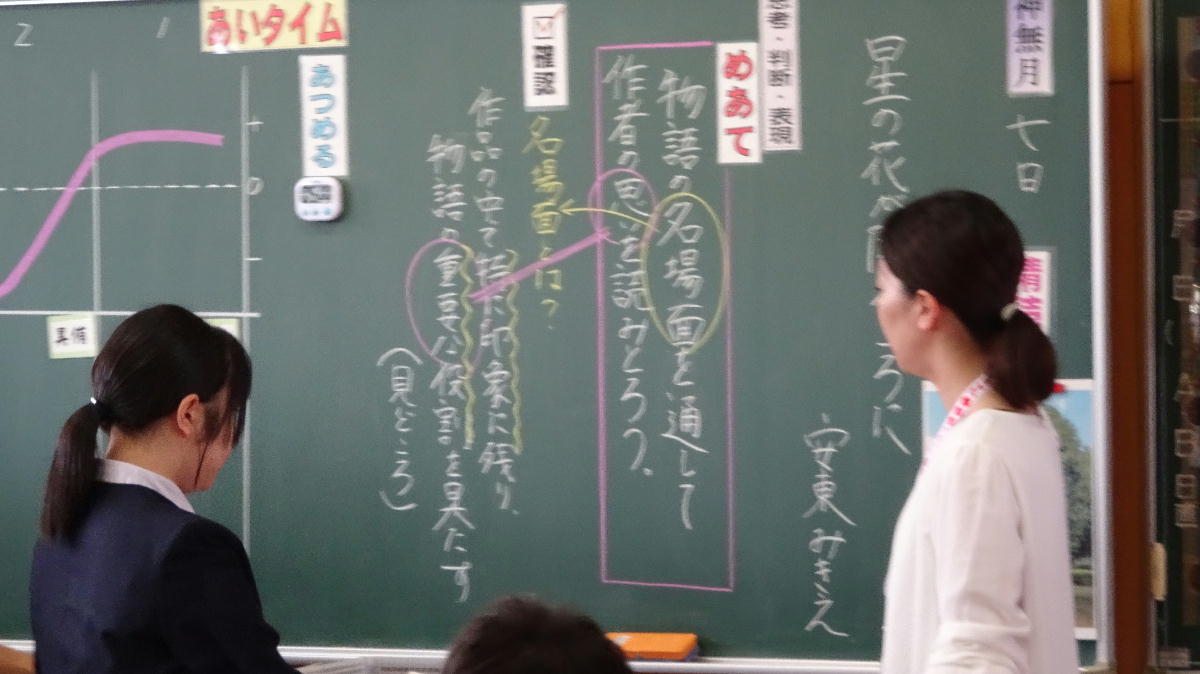 神無月
七日
星の花が
ろに
安東みきえ
思考・判断・表現
めあて
物語の名場面を通して
作者の思いを読みとろう。
確認
名場面とは?
作品の中で特に印象に残り、
物語の重要な役割を果たす
(見どころ)
あいタイム
あつめる
1
2
+
0
−